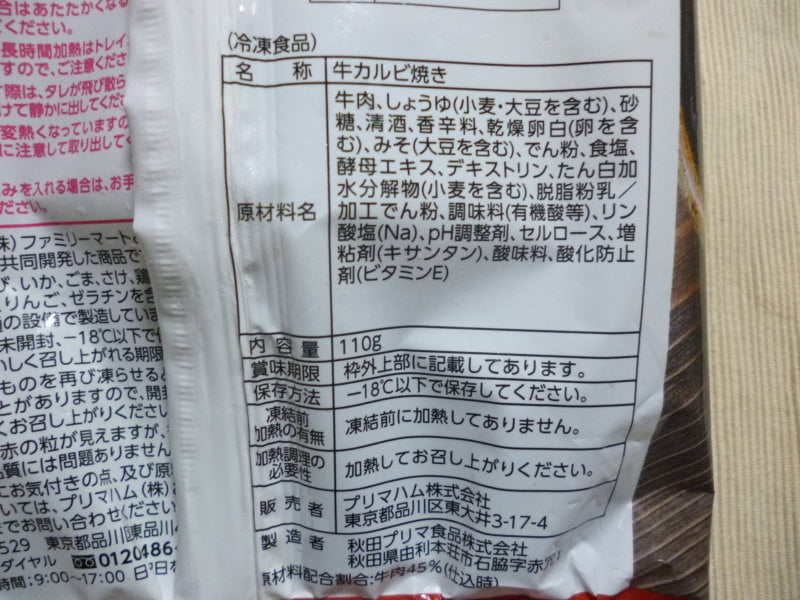 合はあたたかくなる
ください。
長時間加熱はトレイ
すので、ご注意くださ
際は、タレが飛び散ら
けて静かに出してくだ
変熱くなっていますの
に注意して取り出して
みを入れる場合は、お手
ださい。
株)ファミリーマートと
共同開発した商品で
び、いか、ごま、さけ、鶏
りんご、ゼラチンを含
の設備で製造していま
未開封、−18℃以下で保
いしく召し上がれる期限
ものを再び凍らせると
とがありますので、開封
くお召し上がりください
赤の粒が見えますが、
品質には問題ありません
にお気付きの点、及び原
いては、プリマハム(株)
までお問い合わせください
529 東京都品川区東品川4
ダイヤル 0120-486-
時間:9:00〜17:00 日・
(冷凍食品)
名称 牛カルビ焼き
原材料名
牛肉、しょうゆ(小麦・大豆を含む)、砂
糖、清酒、香辛料、乾燥卵白(卵を含
む)、みそ(大豆を含む)、でん粉、食塩、
酵母エキス、デキストリン、たん白加
水分解物(小麦を含む)、脱脂粉乳/
加工でん粉、調味料(有機酸等)、リン
酸塩(Na)、pH調整剤、セルロース、増
粘剤(キサンタン)、酸味料、酸化防止
剤(ビタミンE)
内容量 110g
賞味期限 枠外上部に記載してあります。
保存方法 −18℃以下で保存してください。
凍結前
加熱の有無 凍結前に加熱してありません。
加熱調理の
必要性 加熱してお召し上がりください。
販売者 プリマハム株式会社
東京都品川区東大井3-17-4
製造者 秋田プリマ食品株式会社
秋田県由利本荘市石脇字赤兀1
原材料配合割合:牛肉45%(仕込時)